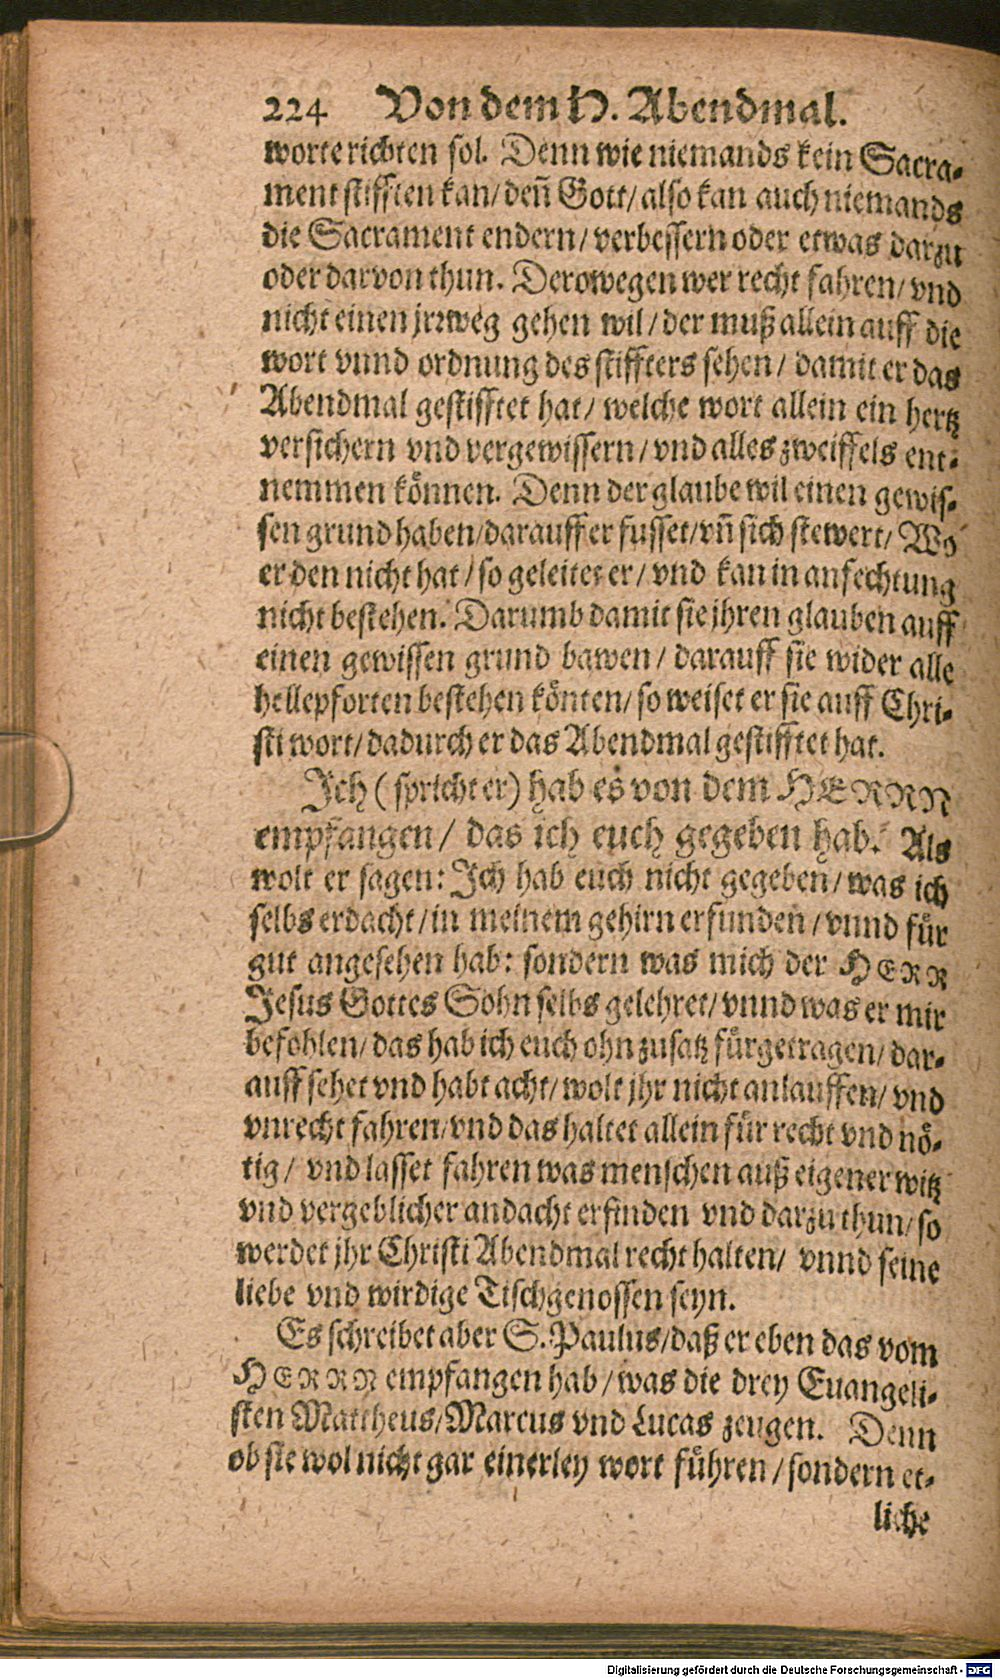 224 Von dem H. Abendmal.
worte richten sol. Denn wie niemands kein Sacra-
ment stifften kan/ deñ Gott/ also kan auch niemands
die Sacrament endern/ verbessern oder etwas darzu
oder darvon thun. Derowegen wer recht fahren/ vnd
nicht einen jrrweg gehen wil/ der muß allein auff die
wort vnnd ordnung des stiffters sehen/ damit er das
Abendmal gestifftet hat/ welche wort allein ein hertz
versichern vnd vergewissern/ vnd alles zweiffels ent-
nemmen können. Denn der glaube wil einen gewis-
sen grund haben/ darauff er fusset/ vñ sich stewert/ Wo
er den nicht hat/ so geleitet er/ vnd kan in anfechtung
nicht bestehen. Darumb damit sie jhren glauben auff
einen gewissen grund bawen/ darauff sie wider alle
hellepforten bestehen könten/ so weiset er sie auff Chri-
sti wort/ dadurch er das Abendmal gestifftet hat.
Ich (spricht er) hab es von dem HERRN
empfangen/ das ich euch gegeben hab. Als
wolt er sagen: Ich hab euch nicht gegeben/ was ich
selbs erdacht/ in meinem gehirn erfunden/ vnnd für
gut angesehen hab: sondern was mich der HERR
Jesus Gottes Sohn selbs gelehret/ vnnd was er mir
befohlen/ das hab ich euch ohn zusatz fürgetragen/ dar-
auff sehet vnd habt acht/ wolt jhr nicht anlauffen/ vnd
vnrecht fahren/ vnd das haltet allein für recht vnd nö-
tig/ vnd lasset fahren was menschen auß eigener witz
vnd vergeblicher andacht erfinden vnd darzu thun/ so
werdet jhr Christi Abendmal recht halten/ vnnd seine
liebe vnd wirdige Tischgenossen seyn.
Es schreibet aber S. Paulus/ daß er eben das vom
HERRN empfangen hab/ was die drey Euangeli-
sten Mattheus/ Marcus vnd Lucas zeugen. Denn
ob sie wol nicht gar einerley wort führen/ sondern et-
liche
Digitalisierung gefördert durch die Deutsche Forschungsgemeinschaft - DFG